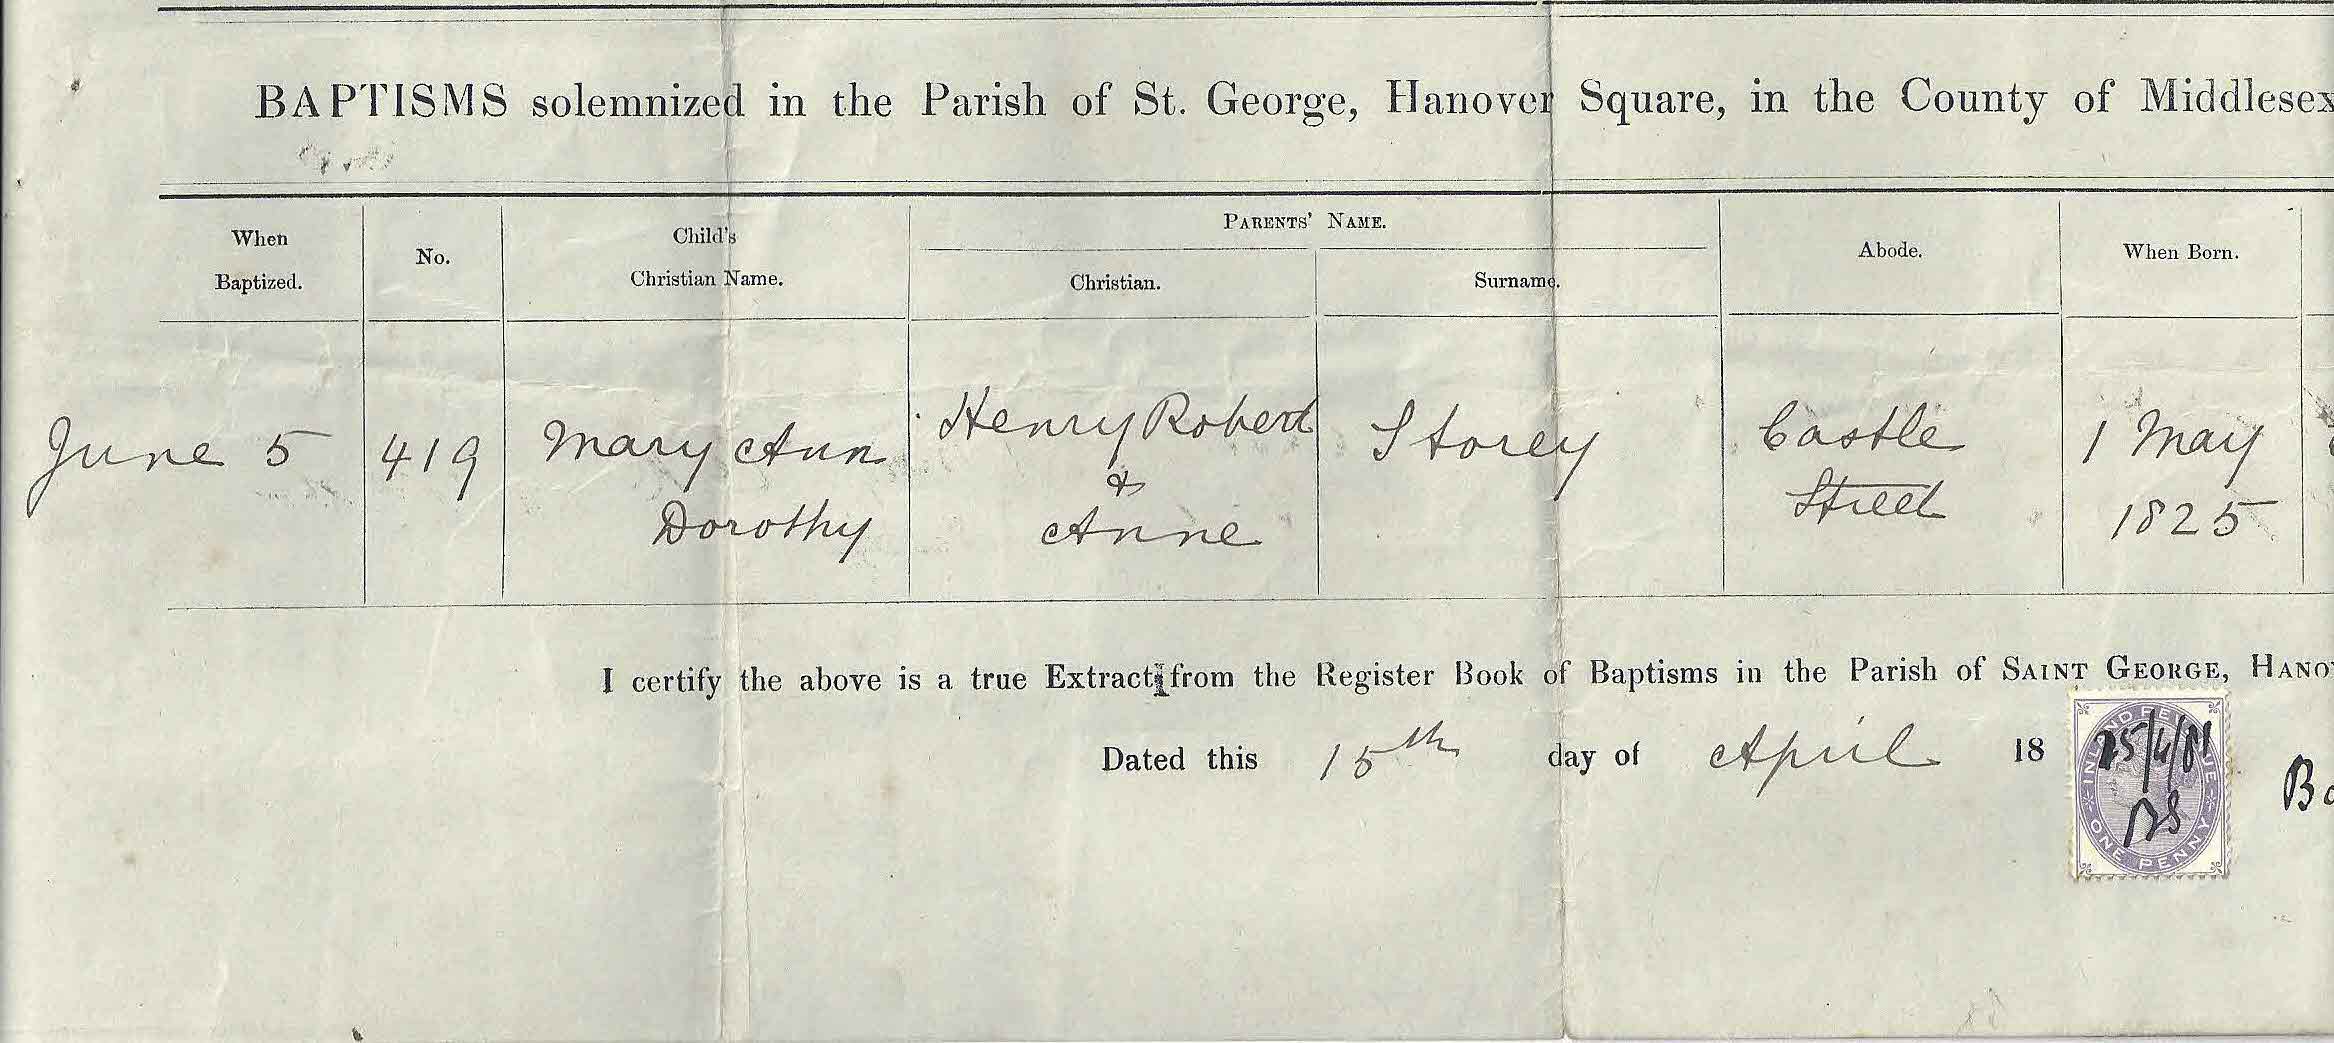 BAPTISMS solemnized in the Parish of St. George, Hanover Square, in the County of Middlesex
When Baptized.
No.
Child's Christian Name.
PARENTS' NAME.
Christian.
Surname.
Abode.
When Born.
June 5
419
Mary Ann
Dorothy
Henry Robert
&
Anne
Storey
Castle
Street
1 May
1825
I certify the above is a true Extract from the Register Book of Baptisms in the Parish of SAINT GEORGE, HANO
Dated this 15th day of April 18
INLAND REVENUE
ONE PENNY